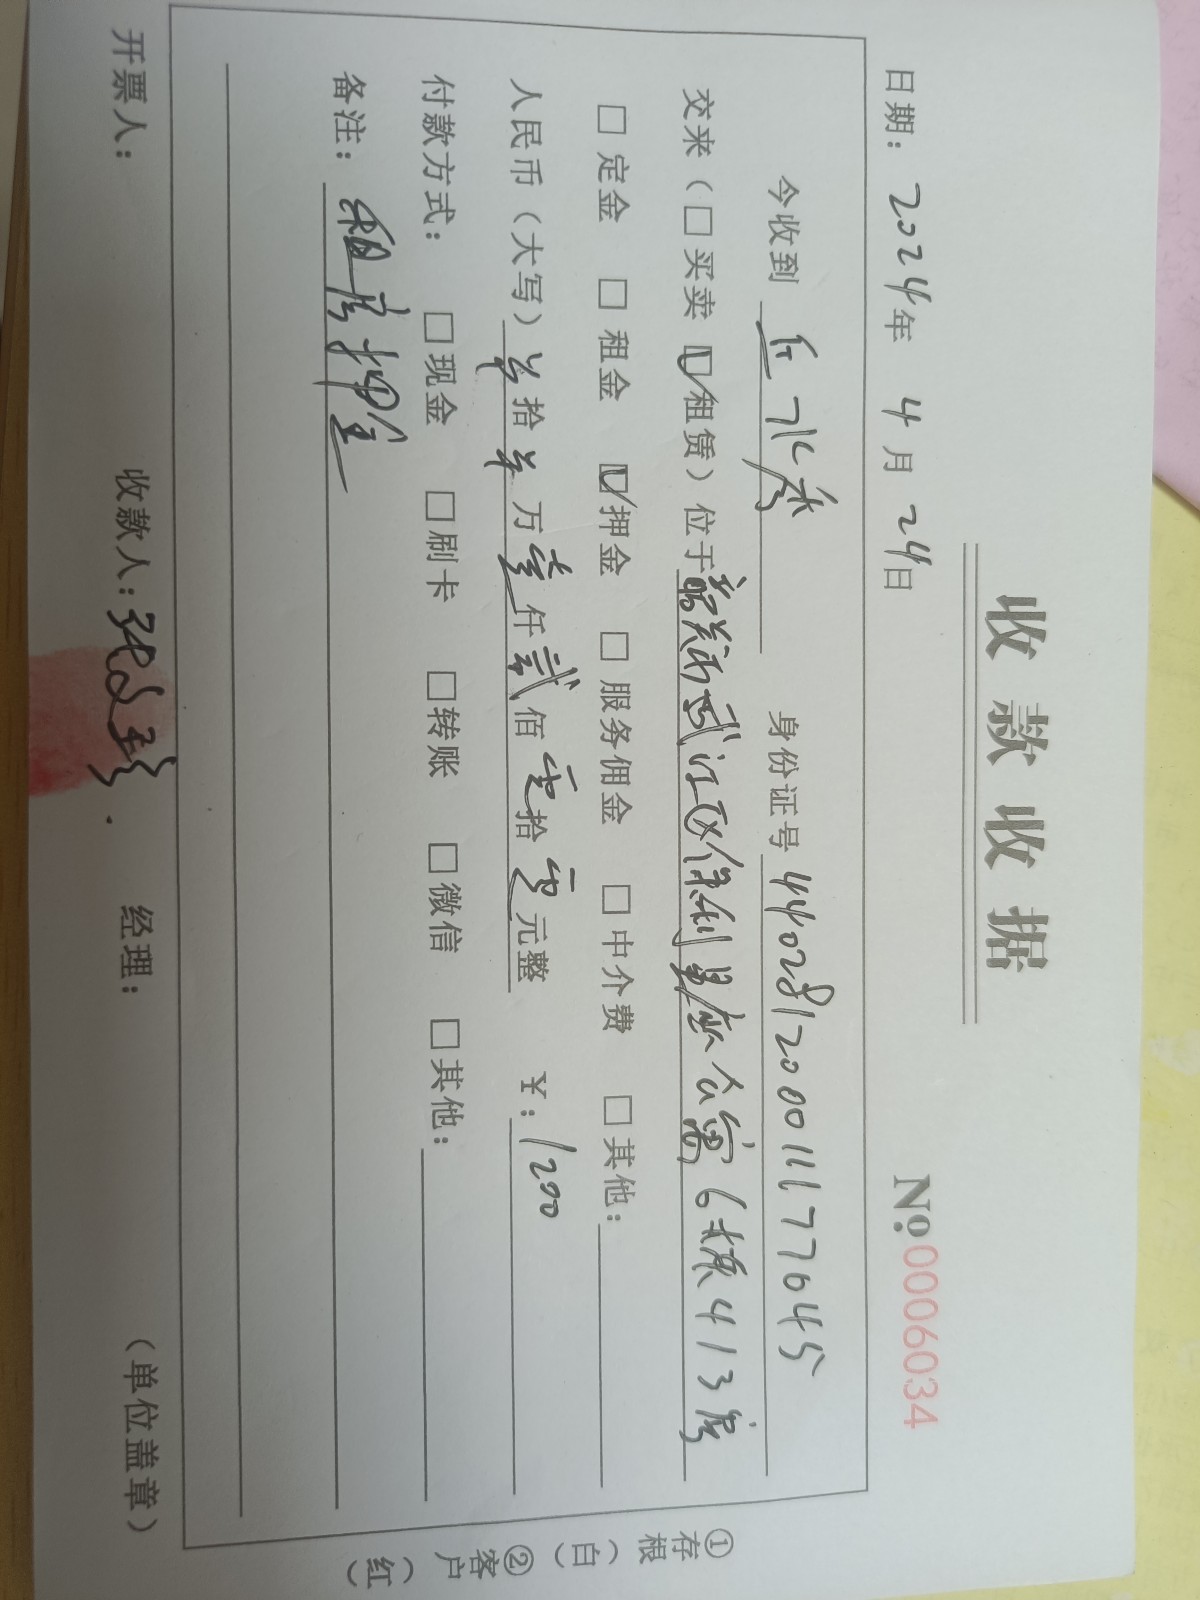 收款收据
日期：2024年 4月 24日 №0006034
今收到 丘 身份证号 440281200011177645
交来（□买卖 ☑租赁）位于韶关市武江区保利 公寓6栋413房
□定金 □租金 ☑押金 □服务佣金 □中介费 □其他：
人民币（大写） 拾 万壹仟贰佰零拾零元整 ¥：1200
付款方式：□现金 □刷卡 □转账 □微信 □其他：
备注：租房押金
开票人： 收款人：张 经理： （单位盖章）
①存根（白） ②客户（红）